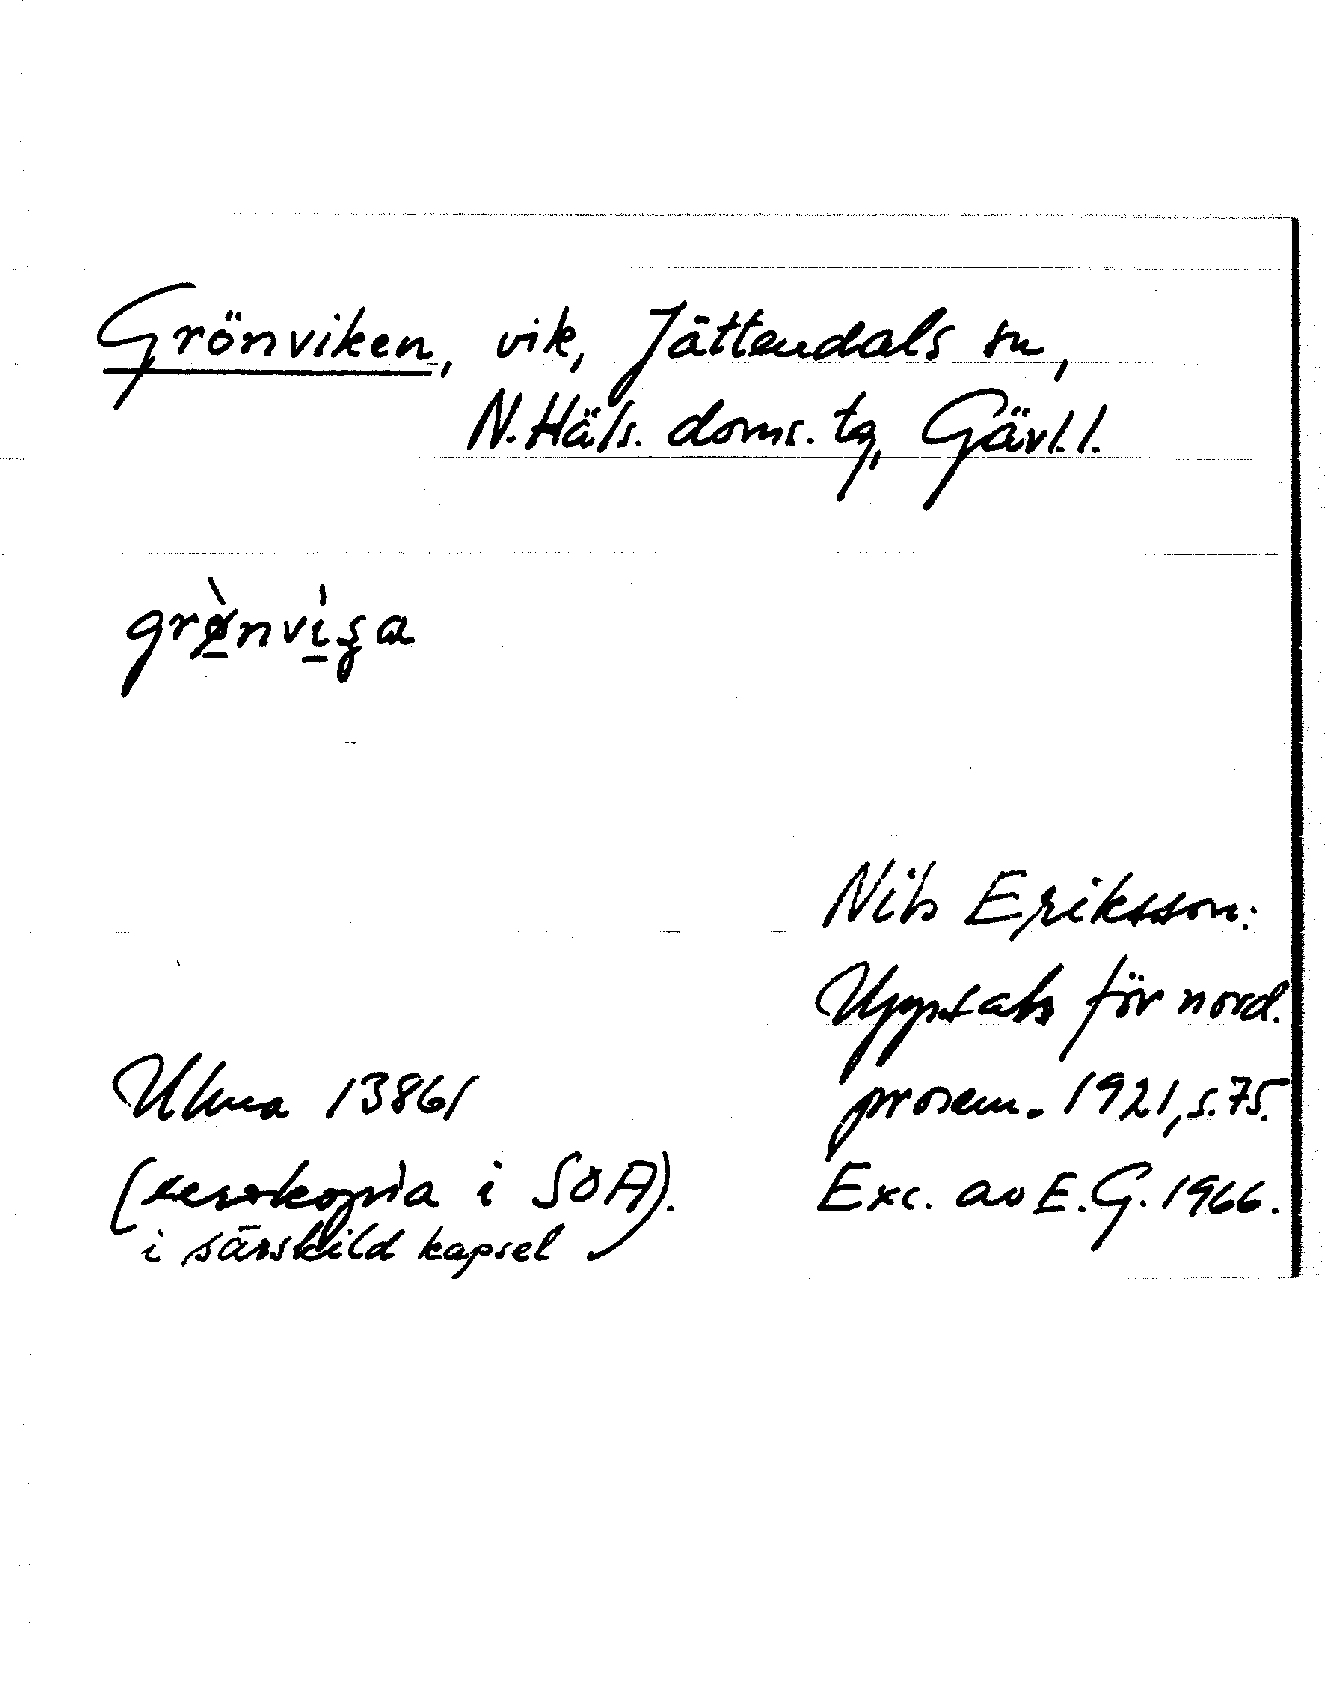 Grönviken, vik, Jättendals sn,
N. Häls. doms. tg, Gävl. l.
grø̠̀nvì̠ga
Nils Eriksson:
Uppsats för nord.
prosem. 1921, s. 75.
Exc. av E. G. 1966.
Ulma 13861
(xerokopia i SOA).
i särskild kapsel